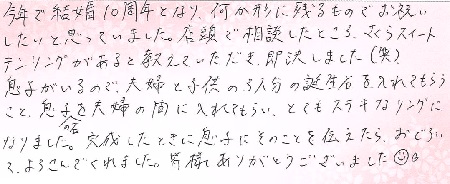 今年で結婚10周年となり、何か形に残るものでお祝い
したいと思っていました。店頭で相談したところ、さくらスイート
テンリングがあると教えていただき、即決しました(笑)
息子がいるので、夫婦と子供の3人分の誕生石を入れてもらう
こと、息子の石を夫婦の間に入れてもらい、とてもステキなリングに
なりました。完成したときに息子にそのことを伝えたら、おどろい
て、よろこんでくれました。皆様ありがとうございました☺。